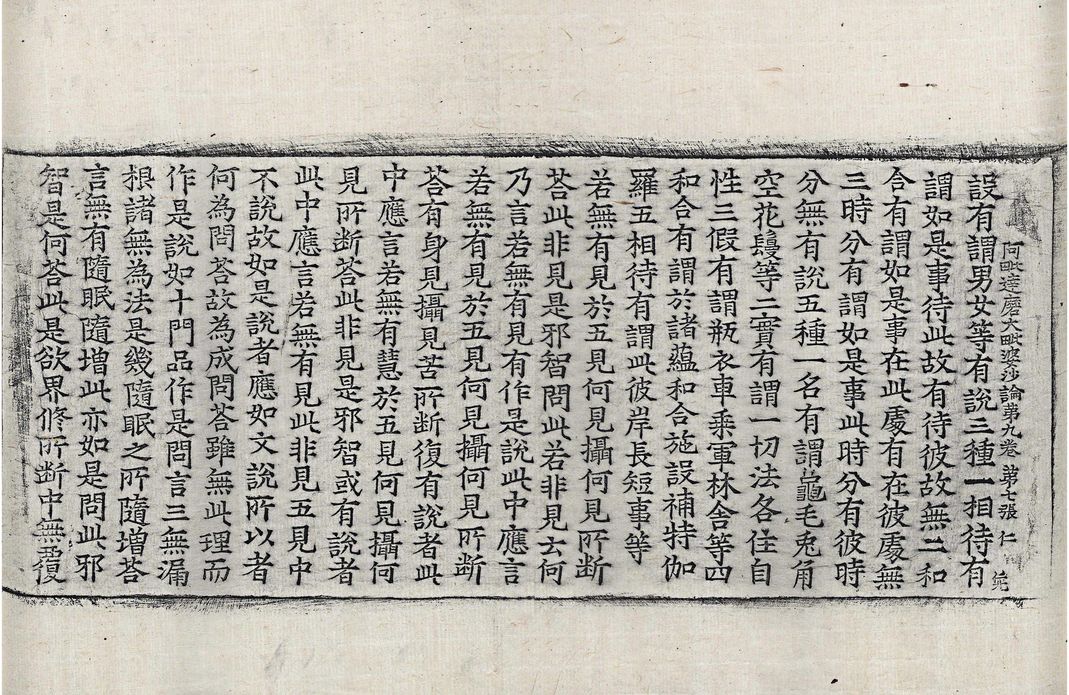 阿毗達磨大毗婆沙論第九卷 第七張 仁
設有謂男女等有說三種一相待有
謂如是事待此故有待彼故無二和
合有謂如是事在此處有在彼處無
三時分有謂如是事此時分有彼時
分無有說五種一名有謂龜毛兎角
空花鬘等二實有謂一切法各住自
性三假有謂瓶衣車乘軍林舍等四
和合有謂於諸蘊和合施設補特伽
羅五相待有謂此彼岸長短事等
若無有見於五見何見攝何見所斷
荅此非見是邪智問此若非見云何
乃言若無有見有作是說此中應言
若無有見於五見何見攝何見所斷
荅有身見攝見苦所斷復有說者此
中應言若無有慧於五見何見攝何
見所斷荅此非見是邪智或有說者
此中應言若無有見此非見五見中
不說故如是說者應如文說所以者
何為問荅故為成問荅雖無此理而
作是說如十門品作是問言三無漏
根諸無為法是幾隨眠之所隨增荅
言無有隨眠隨增此亦如是問此邪
智是何荅此是欲界修所斷中無覆